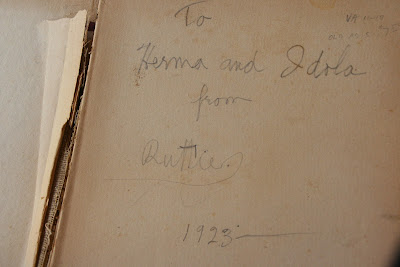 To
Herma and Idola
from
Ruthie
1923